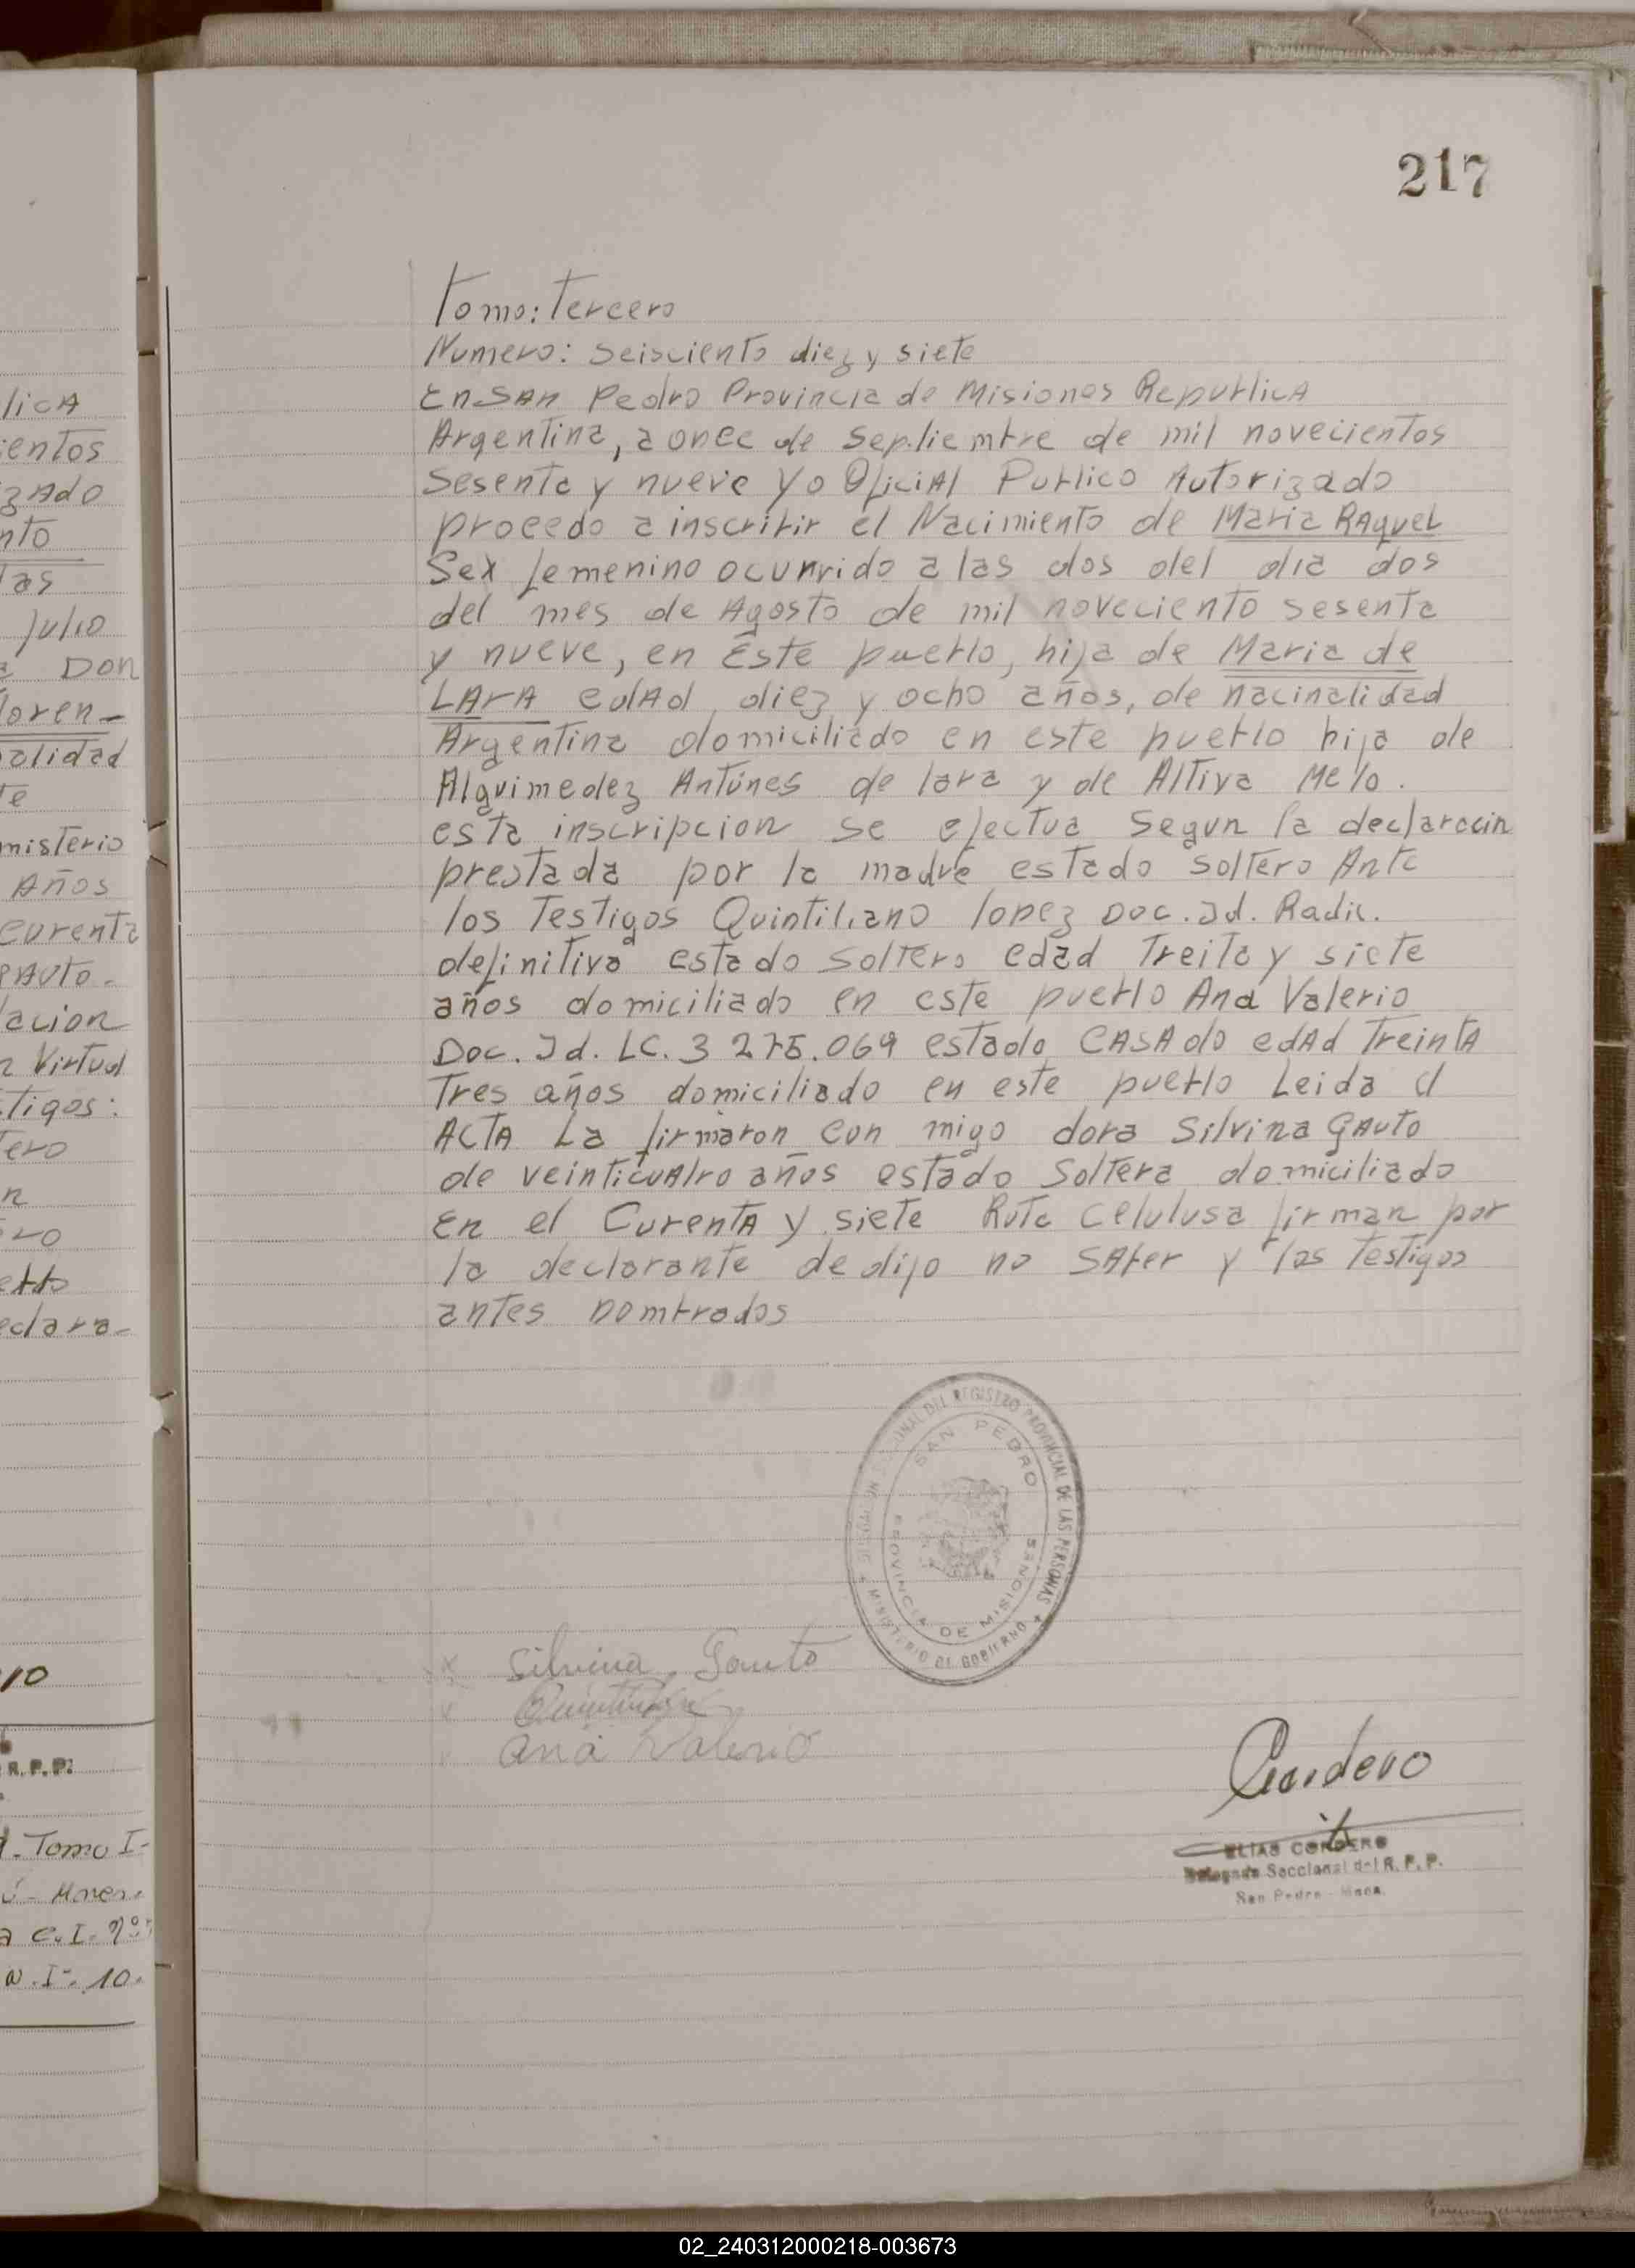 217
Tomo: Tercero
Numero: seisciento diez y siete
En SAn Pedro Provincia de Misiones RepublicA
Argentina, a once de septiembre de mil novecientos
sesenta y nueve Yo OficiAl Publico Autorizado
procedo a inscribir el Nacimiento de Maria RAquel
Sex femenino ocunrido a las dos del dia dos
del mes de Agosto de mil noveciento sesenta
y nueve, en Este pueblo, hija de Maria de
LArA edAd diez y ocho años, de nacinalidad
Argentina domiciliado en este pueblo hija de
Alquimedez Antúnes de lara y de Altiva Melo.
esta inscripcion se efectua segun la declaracin
prestada por la madre estado soltero Ante
los Testigos Quintiliano lopez Doc. Id. Radic.
definitiva estado soltero edad Treita y siete
años domiciliado en este pueblo Ana Valerio
Doc. Id. LC. 3 275.069 estado CASAdo edAd TreintA
Tres años domiciliado en este pueblo Leida el
ACTA La firmaron con migo dora Silvina GAuto
de veinticuAtro años estado Soltera domiciliado
En el CurentA y siete Ruta Celulusa firman por
la declarante de dijo no SAber y los Testigos
antes nombrados
DELEGACION SECCIONAL DEL REGISTRO PROVINCIAL DE LAS PERSONAS
SAN PEDRO
PROVINCIA DE MISIONES
MINISTERIO DE GOBIERNO
x Silvina Gauto
x
Ana Valerio
Cordero
ELIAS CORDERO
Delegado Seccional del R. P. P.
San Pedro - Mnes.
licA
ientos
izAdo
nto
las
Julio
DON
loren-
nalidad
te
misterio
Años
curenta
gAuto-
lacion
n Virtud
tigos:
tero
n
ro
eblo
eclara-
10
R. P. P.
. Tomo I-
a C. I. Nº
I-. 10.
02_240312000218-003673